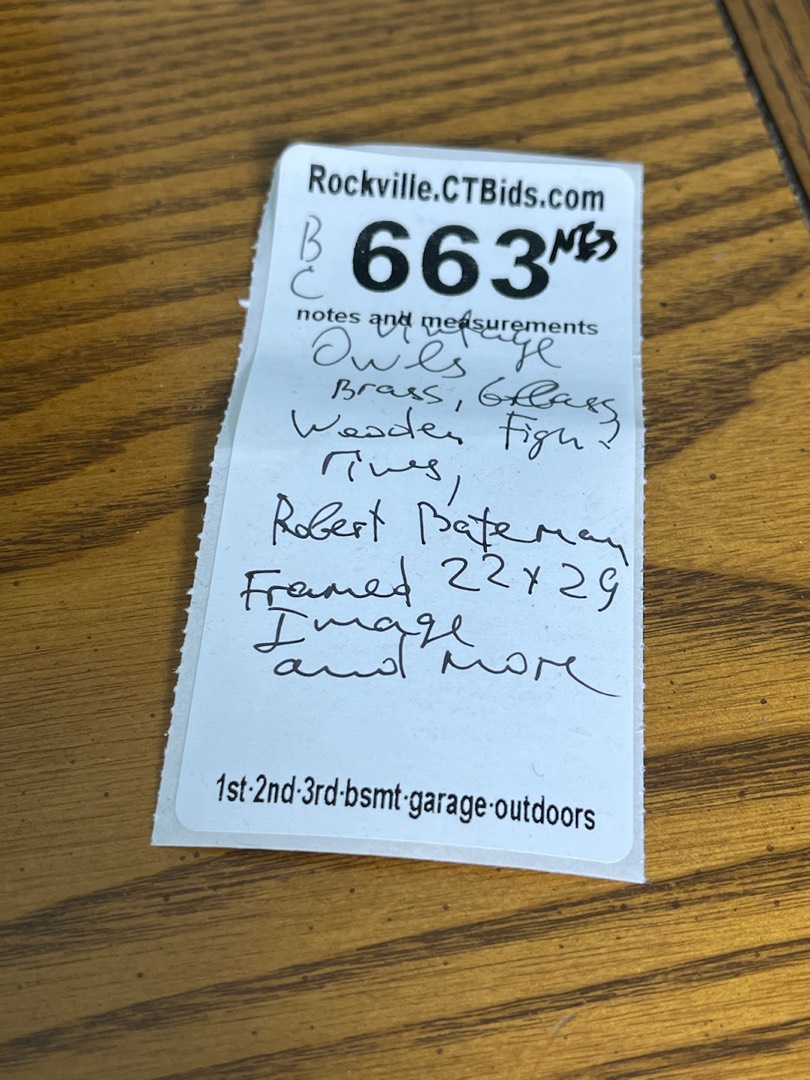 Rockville.CTBids.com
B
C
663
notes and measurements
Vintage
Owls
Brass, Glass,
Wooden Figu-
rines,
Robert Bateman
Framed 22x29
Image
and more
1st·2nd·3rd·bsmt·garage·outdoors